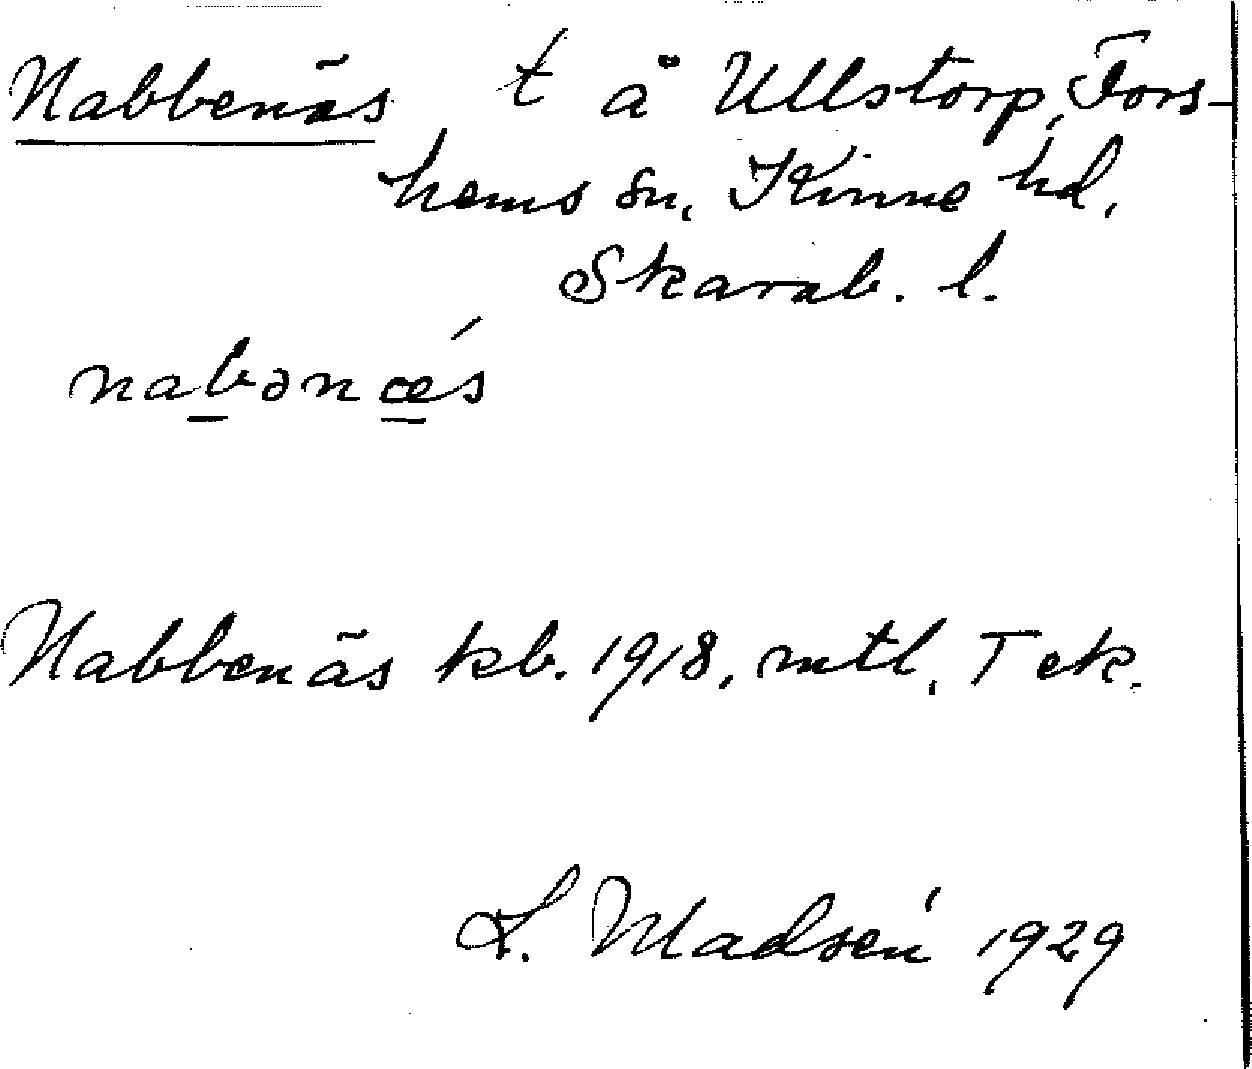 Nabbenäs t å Ullstorp, Fors-
hems sn, Kinne hd,
Skarab. l.
nabənǽs
Nabbenäs kb. 1918, mtl, Tek.
L. Madsén 1929